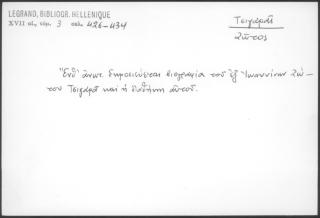 LEGRAND, BIBLIOGR. HELLENIQUE
XVII αἰ., τόμ. 3 σελ. 426-434
Τσιγαρᾶ
Ζῶτος
Ἔνθ' ἄνω δημοσιεύεται βιογραφία τοῦ ἐξ Ἰωαννίνων Ζώ-
του Τσιγαρᾶ καὶ ἡ διαθήκη αὐτοῦ.